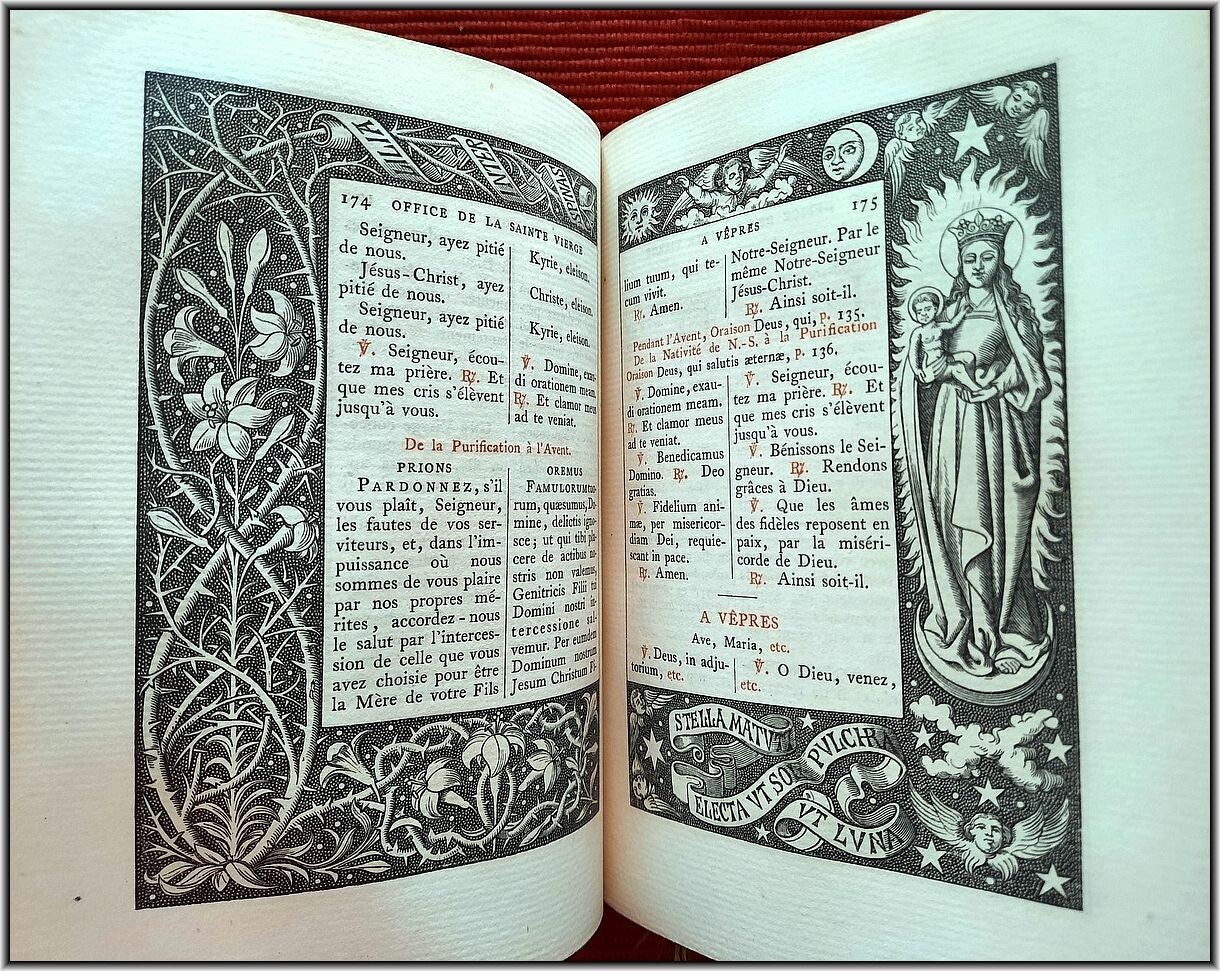 LILIA INTER SPINAS
174 OFFICE DE LA SAINTE VIERGE
Seigneur, ayez pitié
de nous.
Jésus-Christ, ayez
pitié de nous.
Seigneur, ayez pitié
de nous.
℣. Seigneur, écou-
tez ma prière. ℟. Et
que mes cris s'élèvent
jusqu'à vous.
Kyrie, eleison.
Christe, eleison.
Kyrie, eleison.
℣. Domine, exau-
di orationem meam.
℟. Et clamor meus
ad te veniat.
De la Purification à l'Avent.
PRIONS
PARDONNEZ, s'il
vous plaît, Seigneur,
les fautes de vos ser-
viteurs, et, dans l'im-
puissance où nous
sommes de vous plaire
par nos propres mé-
rites, accordez-nous
le salut par l'interces-
sion de celle que vous
avez choisie pour être
la Mère de votre Fils
OREMUS
FAMULORUM tuo-
rum, quæsumus, Do-
mine, delictis igno-
sce; ut qui tibi pla-
cere de actibus no-
stris non valemus,
Genitricis Filii tui
Domini nostri in-
tercessione sal-
vemur. Per eumdem
Dominum nostrum
Jesum Christum Fi-
A VÊPRES 175
lium tuum, qui te-
cum vivit.
℟. Amen.
Notre-Seigneur. Par le
même Notre-Seigneur
Jésus-Christ.
℟. Ainsi soit-il.
Pendant l'Avent, Oraison Deus, qui, p. 135.
De la Nativité de N.-S. à la Purification
Oraison Deus, qui salutis æternæ, p. 136.
℣. Domine, exau-
di orationem meam.
℟. Et clamor meus
ad te veniat.
℣. Benedicamus
Domino. ℟. Deo
gratias.
℣. Fidelium ani-
mæ, per misericor-
diam Dei, requie-
scant in pace.
℟. Amen.
℣. Seigneur, écou-
tez ma prière. ℟. Et
que mes cris s'élèvent
jusqu'à vous.
℣. Bénissons le Sei-
gneur. ℟. Rendons
grâces à Dieu.
℣. Que les âmes
des fidèles reposent en
paix, par la miséri-
corde de Dieu.
℟. Ainsi soit-il.
A VÊPRES
Ave, Maria, etc.
℣. Deus, in adju-
torium, etc.
℣. O Dieu, venez,
etc.
STELLA MATVTI PVLCHRA
ELECTA VT SOL VT LVNA